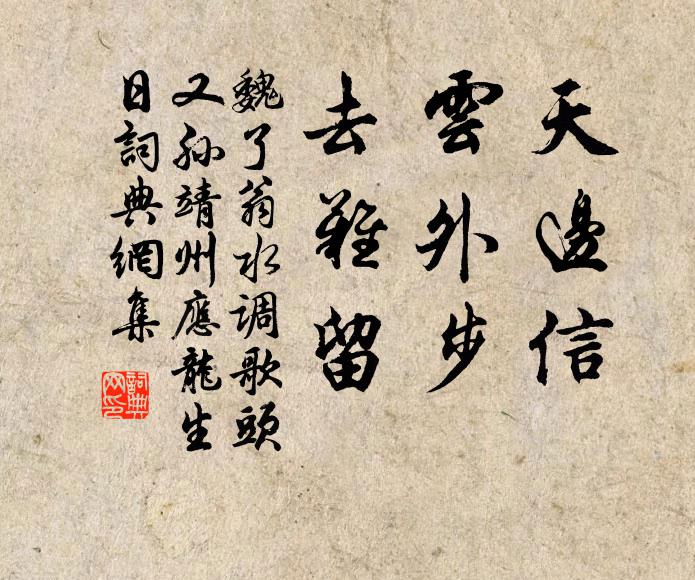 天邊信
雲外步
去難留
魏了翁水调歌頭
又孙靖州應龍生
日詞典網集
詞典
网印